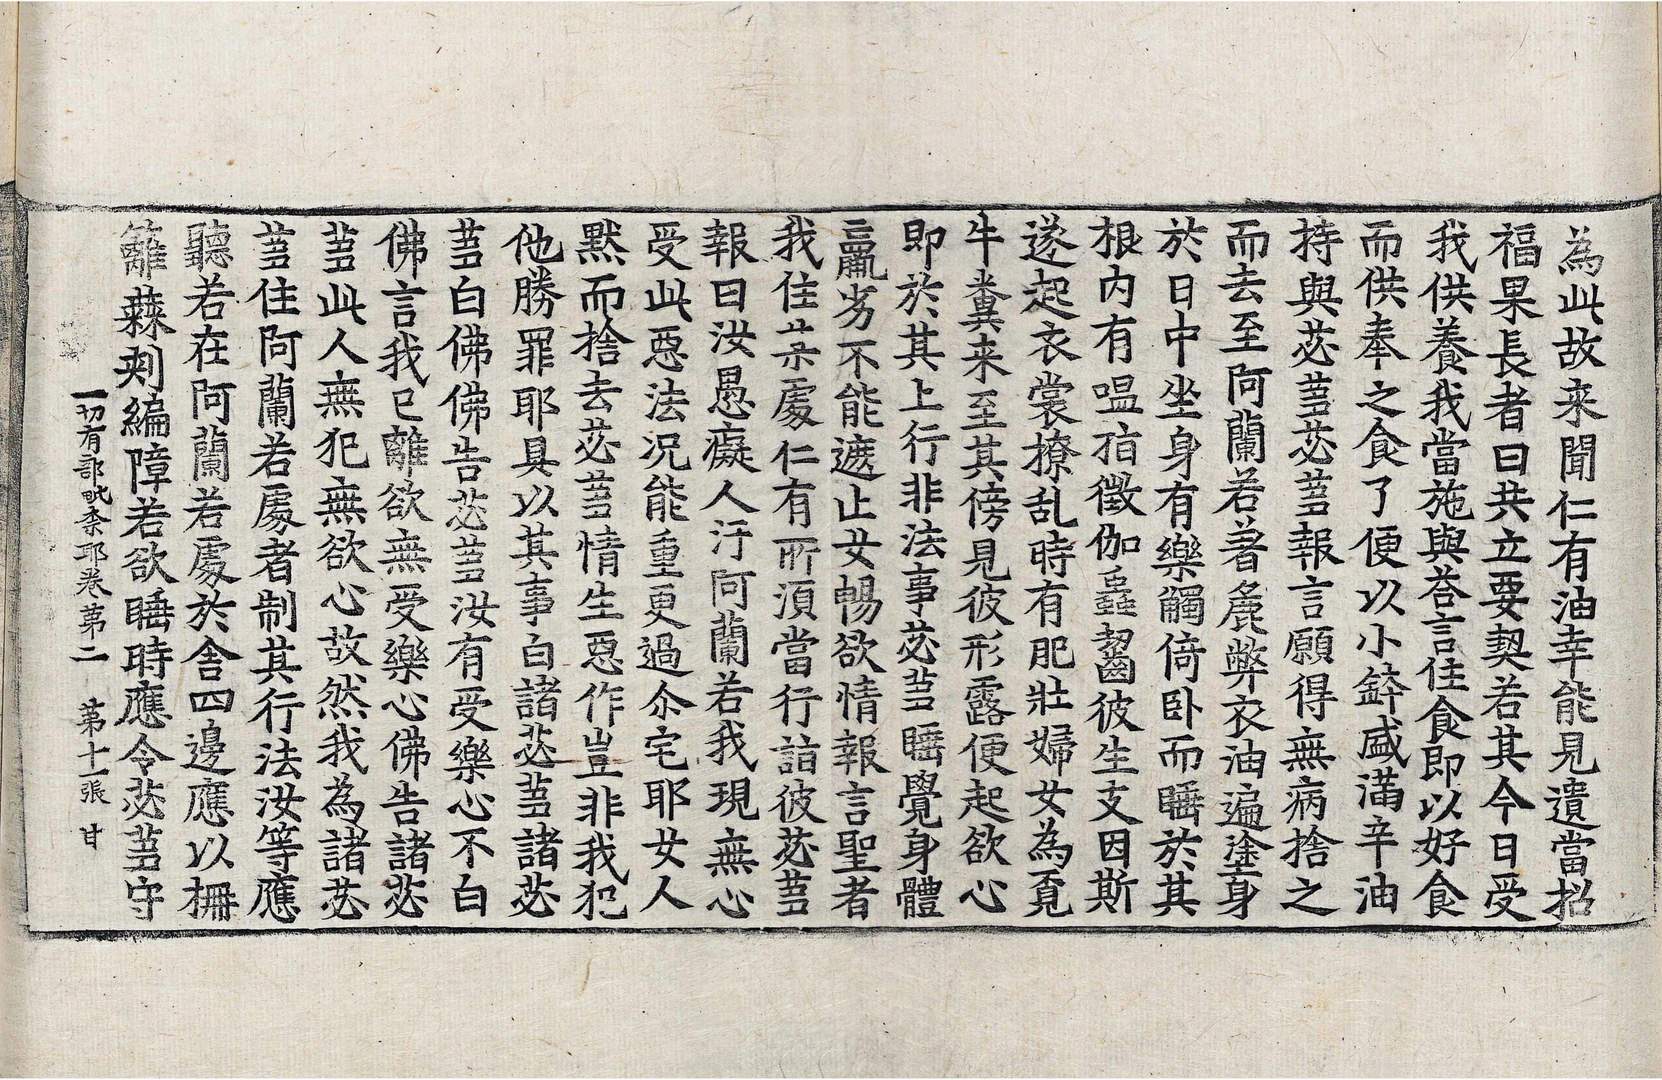 為此故来聞仁有油幸能見遺當招
福果長者曰共立要契若其今日受
我供養我當施與荅言住食即以好食
而供奉之食了便以小鉢盛滿辛油
持與苾蒭苾蒭報言願得無病捨之
而去至阿蘭若著麁弊衣油遍塗身
於日中坐身有樂觸倚卧而睡於其
根内有嗢指徴伽蟲齧彼生支因斯
遂起衣裳撩乱時有肥壮婦女為覔
牛糞来至其傍見彼形露便起欲心
即於其上行非法事苾蒭睡覺身體
羸劣不能遮止女暢欲情報言聖者
我住某處仁有所須當行詣彼苾蒭
報曰汝愚癡人汙阿蘭若我現無心
受此惡法况能重更過尒宅耶女人
默而捨去苾蒭情生惡作豈非我犯
他勝罪耶具以其事白諸苾蒭諸苾
蒭白佛佛告苾蒭汝有受樂心不白
佛言我已離欲無受樂心佛告諸苾
蒭此人無犯無欲心故然我為諸苾
蒭住阿蘭若處者制其行法汝等應
聽若在阿蘭若處於舍四邊應以柵
籬蕀刺編障若欲睡時應令苾蒭守
一切有部毗奈耶卷苐二 苐十一張 甘